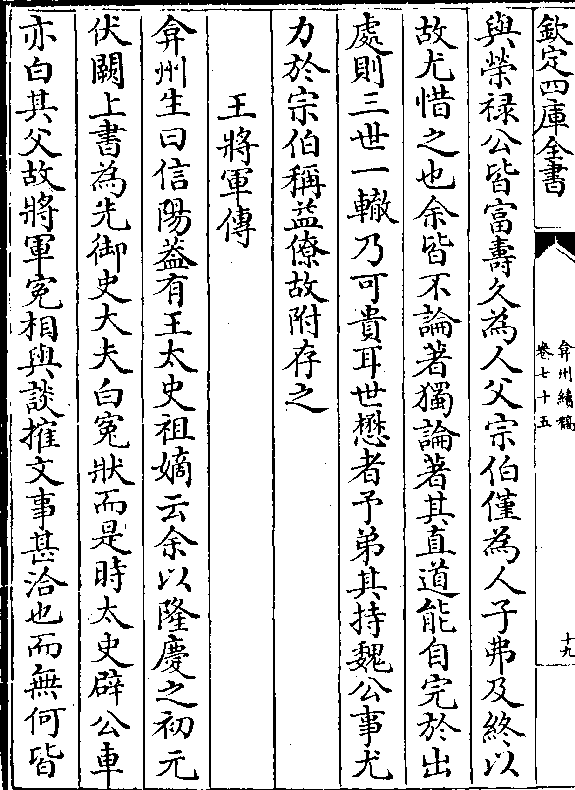 欽定四庫全書
弇州續稿
卷七十五
十九
與榮禄公皆富壽久為人父宗伯僅為人子弗及終以
故尤惜之也余皆不論著獨論著其直道能自完於出
處則三世一轍乃可貴耳世懋者予弟其持魏公事尤
力於宗伯稱益僚故附存之
王將軍傳
弇州生曰信陽葢有王太史祖嫡云余以隆慶之初元
伏闕上書為先御史大夫白寃狀而是時太史辟公車
亦白其父故將軍寃相與談搉文事甚洽也而無何皆